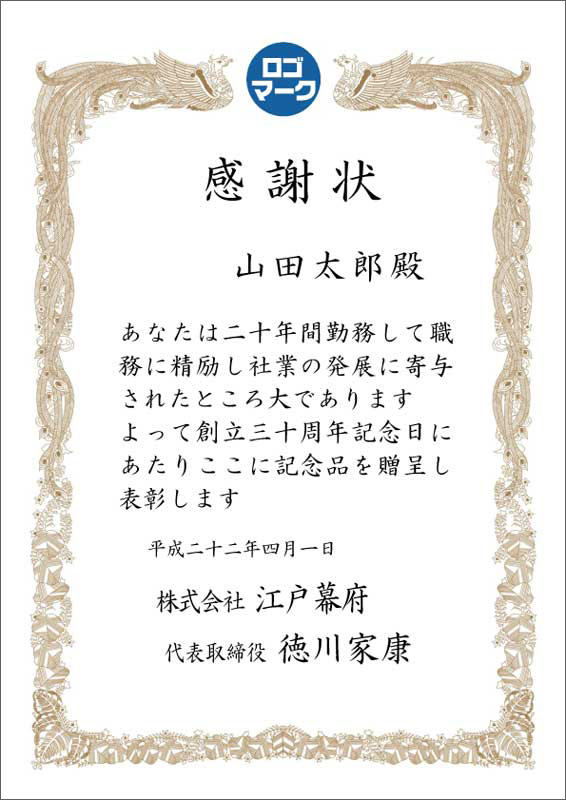 ロゴ
マーク
感謝状
山田太郎殿
あなたは二十年間勤務して職
務に精励し社業の発展に寄与
されたところ大であります
よって創立三十周年記念日に
あたりここに記念品を贈呈し
表彰します
平成二十二年四月一日
株式会社 江戸幕府
代表取締役 徳川家康